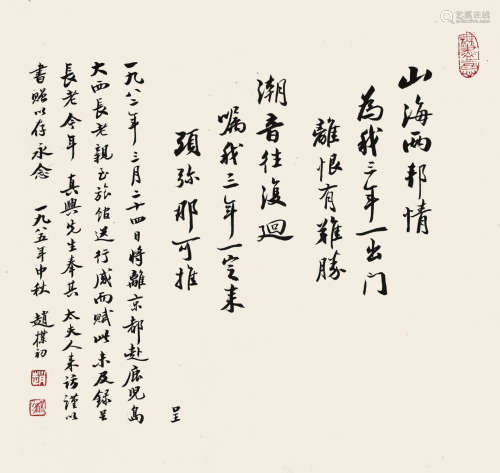 山海两邦情
為我三年一出门
離恨有難勝
潮音往復迴
嘱我三年一定来
須弥那可推
呈
一九八二年三月二十四日将離京都赴鹿児島
大西長老親至旅馆送行感而赋此未及録呈
長老今年 真興先生奉其 太夫人来访謹以
書贈以存永念 一九八五年中秋 趙樸初